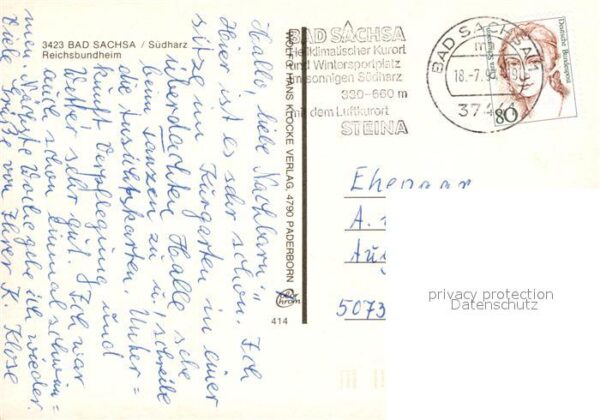 3423 BAD SACHSA / Südharz
Reichsbundheim
Hallo, liebe Nachbarn!
Hier ist es sehr schön. Ich
sitze im Kurgarten in einer
überdachten Halle sehe
beim Tanzen zu u. schreibe
die Ansichtskarten. Unter=
kunft, Verpflegung und
Wetter sehr gut. Ich war
auch schon einmal schwim=
men. Nächste Woche gehe ich wieder.
Viele Grüße von Ihrer K. Klose
HANS KLOCKE VERLAG, 4790 PADERBORN
414
BAD SACHSA
Heilklimatischer Kurort
und Wintersportplatz
im sonnigen Südharz
330-660 m
mit dem Luftkurort
STEINA
BAD SACHSA
18.-7.9
Deutsche Bundespost
80
Ehepaar
A.
5073
privacy protection
Datenschutz